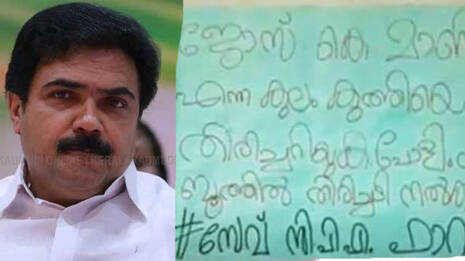 ജോസ് കെ മാണി
എന്ന കുലം കുത്തിയെ
തിരിച്ചറിയുക പോളിംഗ്
ബൂത്തിൽ തിരിച്ചടി നൽകുക
#സേവ് സിപിഎം ഫോറം